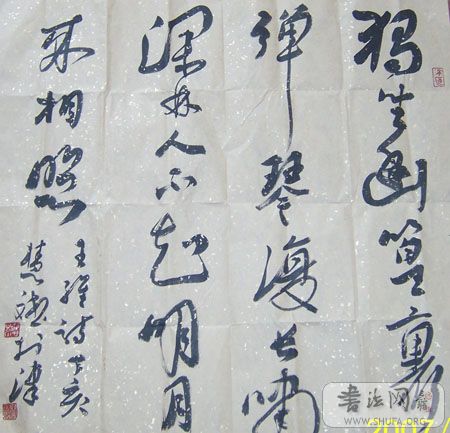 獨坐幽篁裏
彈琴復長嘯
深林人不知明月
來相照
王維詩丁亥
慧
於津
書法网
WWW.SHUFA.ORG